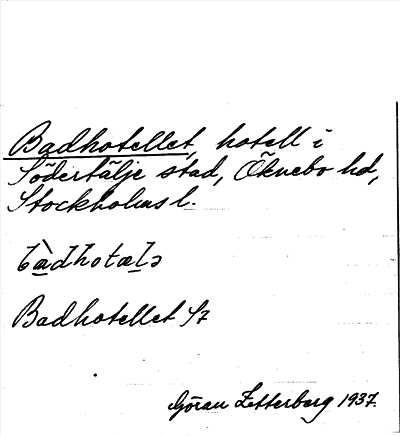 Badhotellet, hotell i
Södertälje stad, Öknebo hd,
Stockholms l.
Badhotellet
Göran Zetterberg 1937.